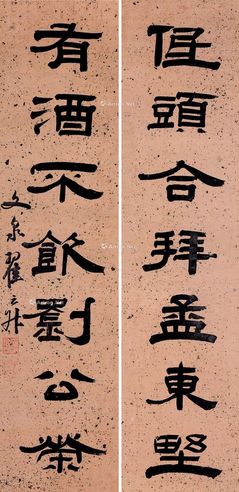 低頭合拜孟東野
有酒不飲劉公榮
文泉翟云升